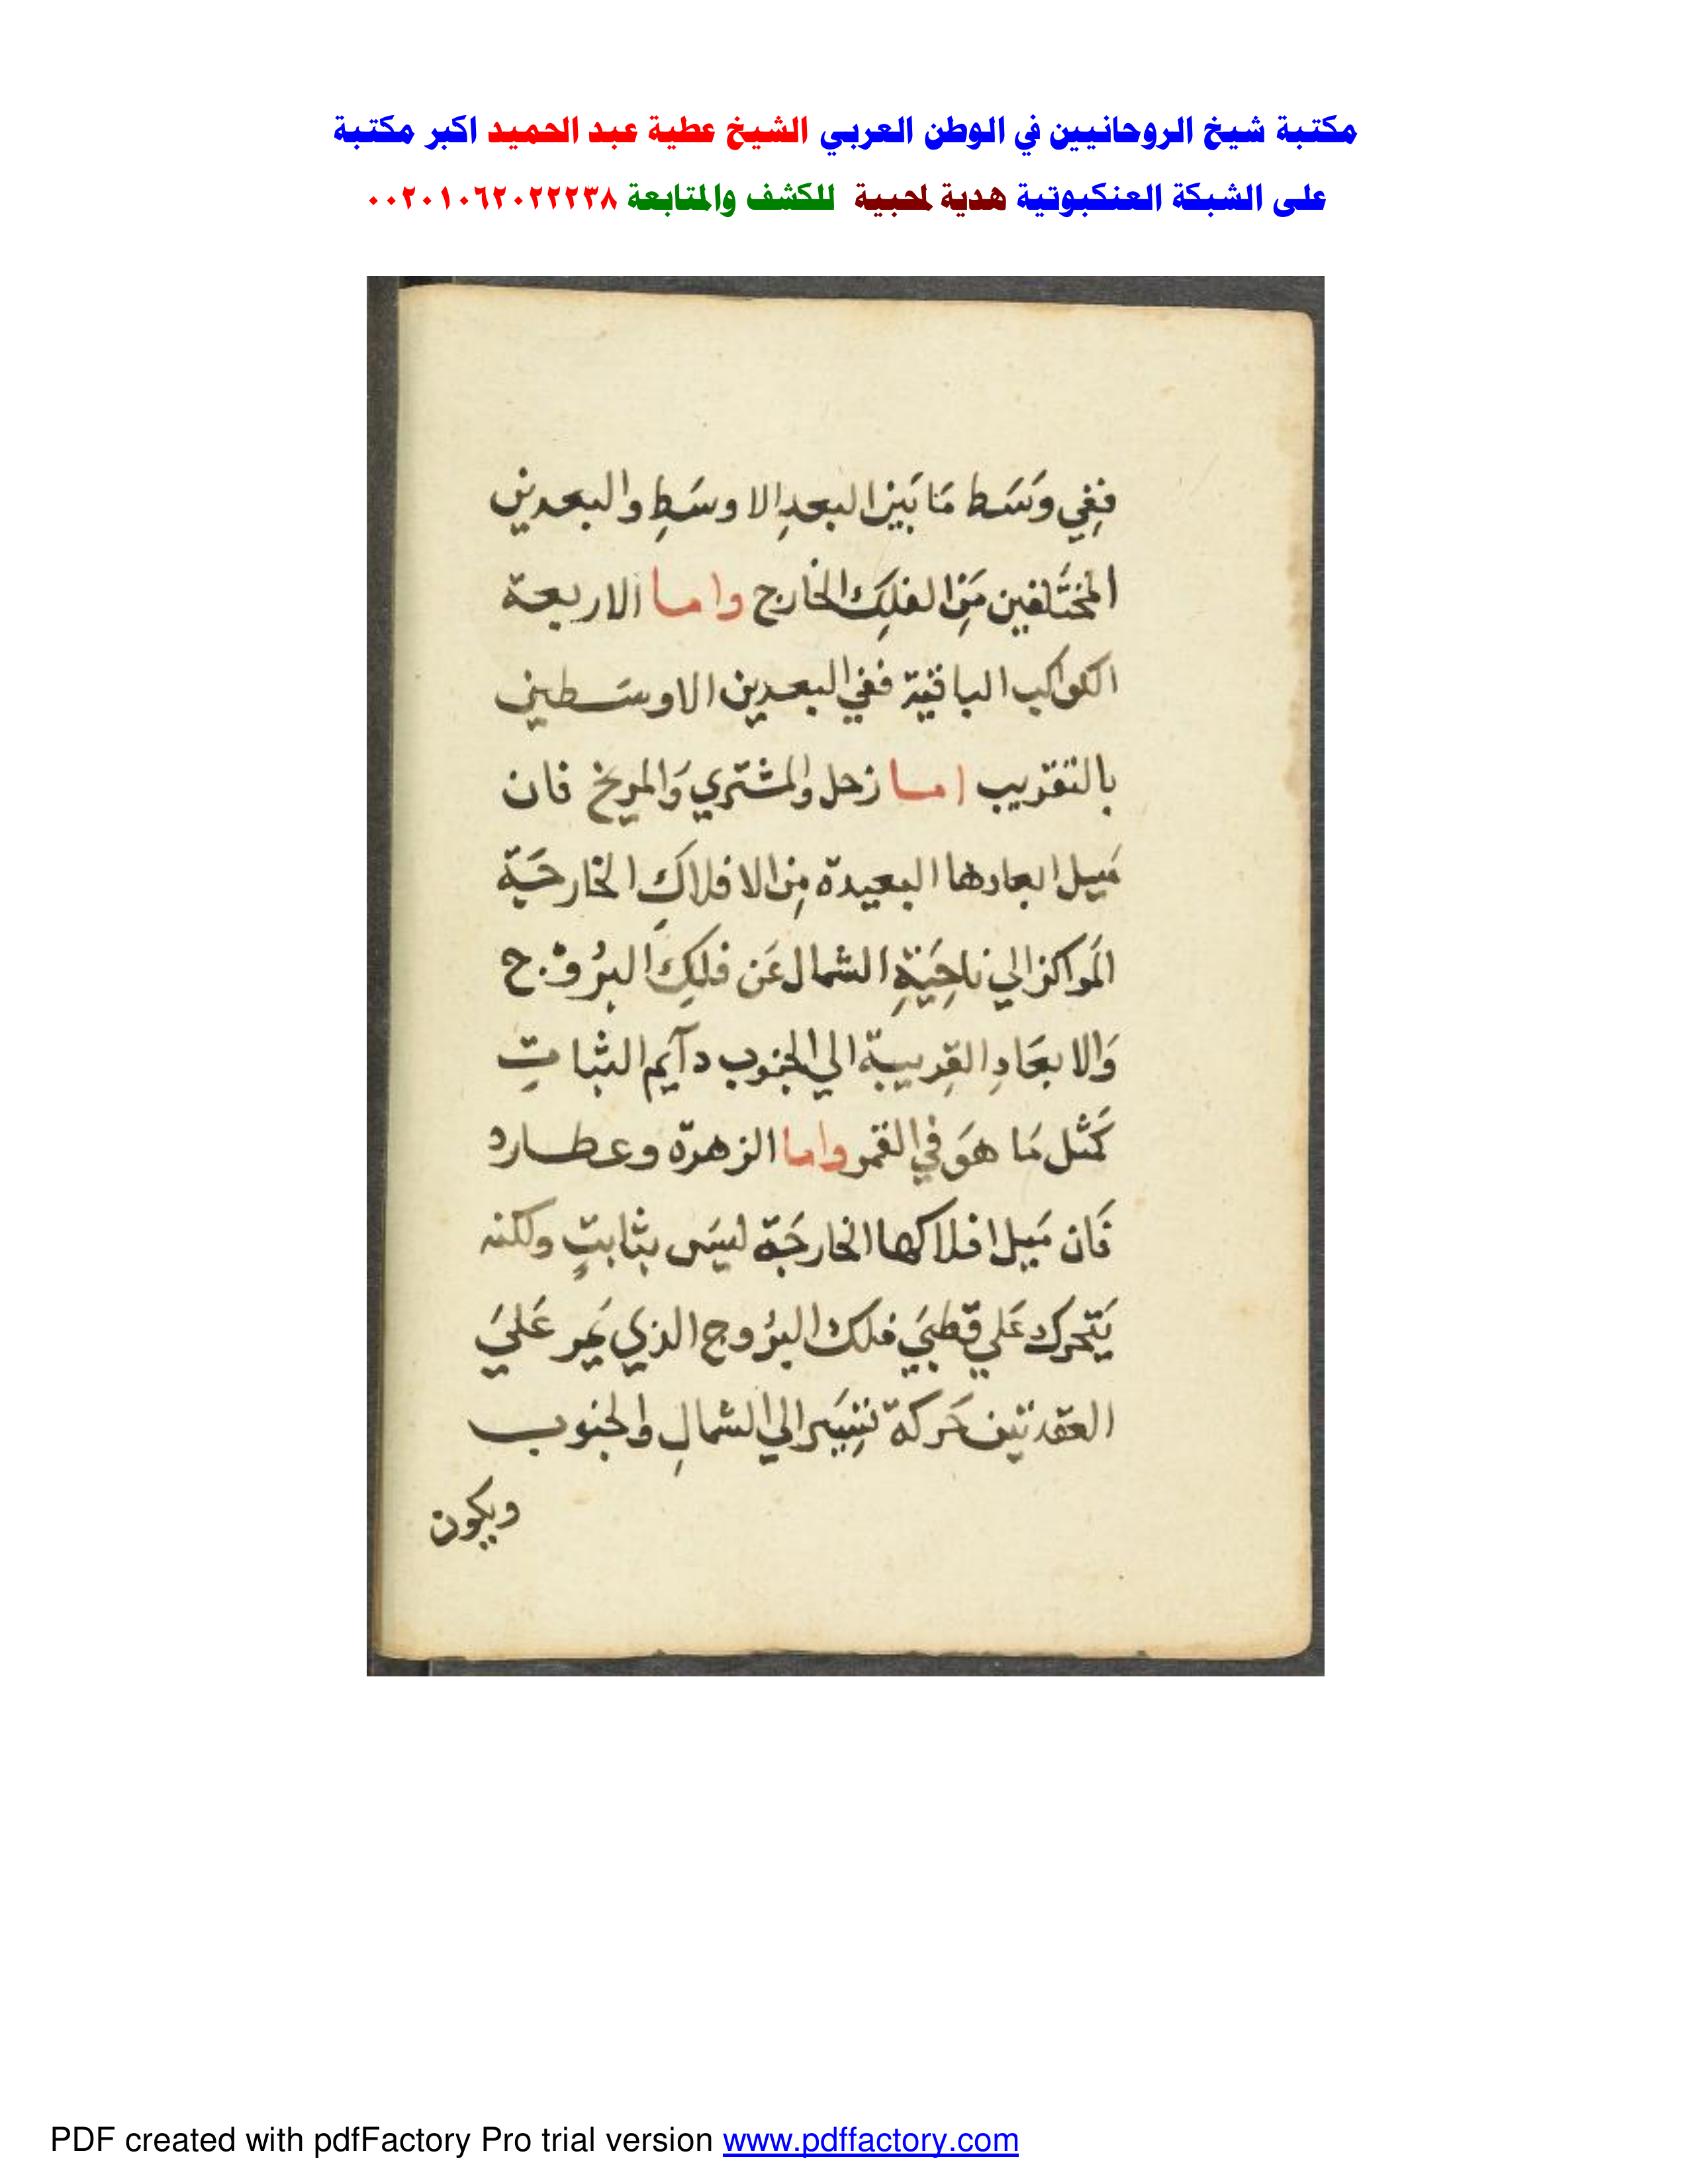 مكتبة شيخ الروحانيين في الوطن العربي الشيخ عطية عبد الحميد اكبر مكتبة
على الشبكة العنكبوتية هدية لمحبية للكشف والمتابعة ٠٠٢٠١٠٦٢٠٢٢٢٣٨
ففِي وَسَط مَا بَين البعدِ الاوسَطِ والبعدين
المختَلفين مَن الفلِك الخارج واما الاربعة
الكواكب الباقية ففي البعدين الاوسَطين
بالتقريب اما زحل والمشتري وَالمريخ فان
مَيل ابعادها البعيدة مِن الافلاكِ الخارجَية
المَواكز الي ناحِيَةِ الشمال عَن فلكِ البرُوج
وَالابعَادِ القِريبة الي الجنوب دآيم الثباتِ
كَمثل مَا هوَ في القمر واما الزهرة وعطارد
فَان مَيل افلاكها الخارجَة ليسَ بثابتٍ ولكنه
يَتحرك عَلي قطبَي فلك البرُوج الذي يَمر عَليَ
العقدتين حَركة تشِيَر الي الشمالِ والجنوب
ويكون
PDF created with pdfFactory Pro trial version www.pdffactory.com